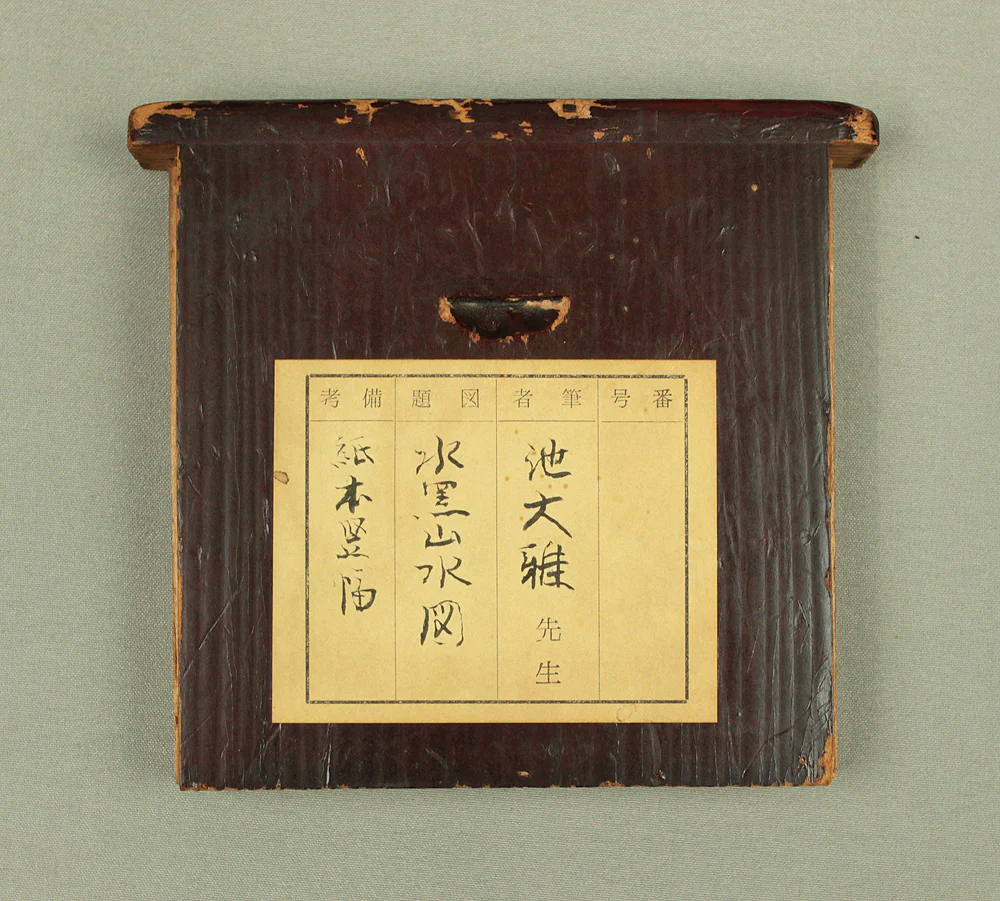 番号
筆者
池大雅先生
図題
水墨山水図
備考
紙本竪幅